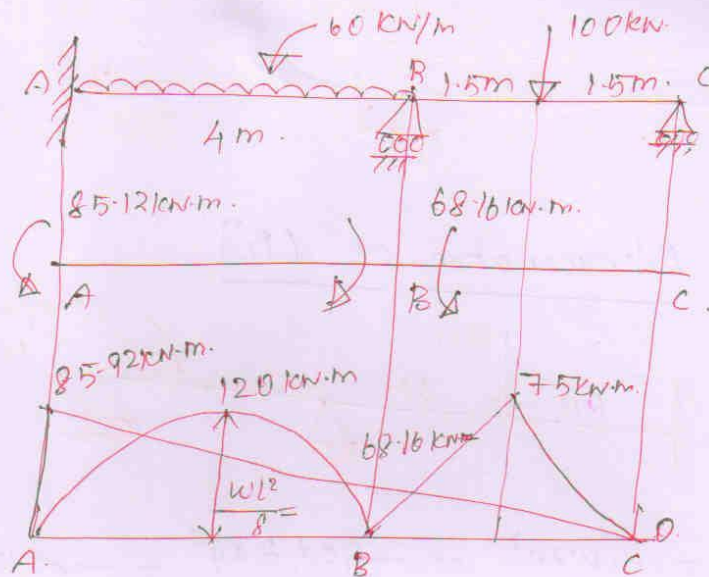 60 KN/m
100KN.
A
B
1.5m
1.5m.
C
4m.
85.12KN.m.
68.16KN.m.
A
B
C.
85.92KN.m.
120KN.m
75KN.m.
68.16KN
WL²
8
A.
B
C